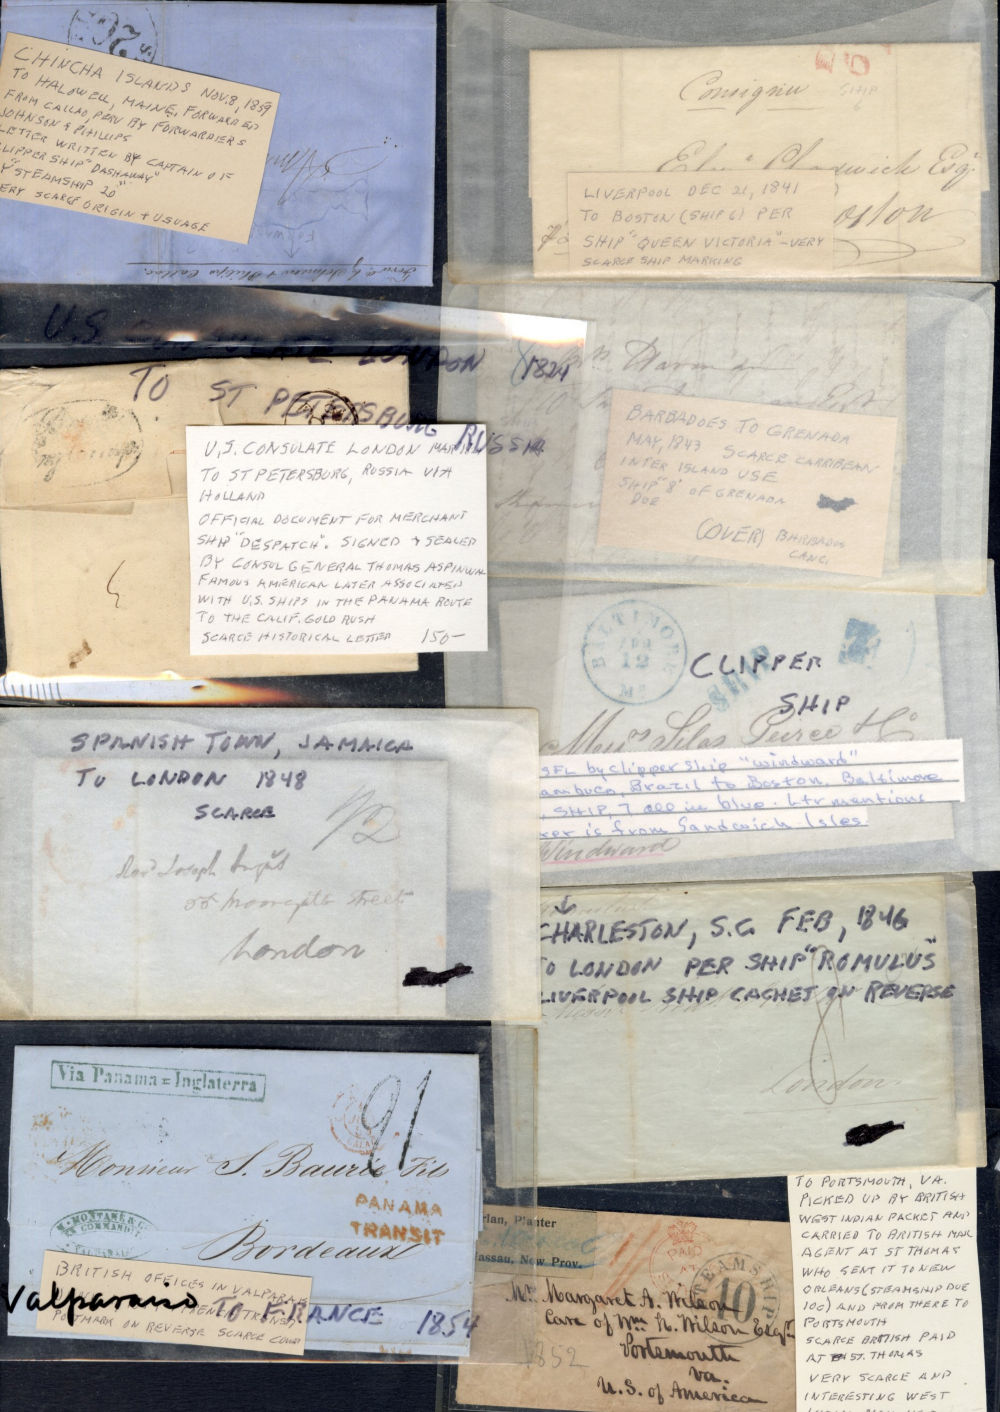 CHINCHA ISLANDS NOV. 8, 1859
TO HALOWELL, MAINE, FORWARDED
FROM CALLAO, PERU BY FORWARDERS
JOHNSON & PHILLIPS
LETTER WRITTEN BY CAPTAIN OF
CLIPPER SHIP "DASHAWAY"
"STEAMSHIP 20"
VERY SCARCE ORIGIN + USUAGE
Consignee
SHIP
6
Esqr
LIVERPOOL DEC 21, 1841
TO BOSTON (SHIP 6) PER
SHIP "QUEEN VICTORIA" - VERY
SCARCE SHIP MARKING
U.S. CONSULATE LONDON 1824
TO ST PETERSBURG RUSSIA
U.S. CONSULATE LONDON MAR
TO ST PETERSBURG, RUSSIA VIA
HOLLAND
OFFICIAL DOCUMENT FOR MERCHANT
SHIP "DESPATCH". SIGNED + SEALED
BY CONSUL GENERAL THOMAS ASPINWAL
FAMOUS AMERICAN LATER ASSOCIATED
WITH U.S. SHIPS IN THE PANAMA ROUTE
TO THE CALIF. GOLD RUSH
SCARCE HISTORICAL LETTER 150-
BARBADOES TO GRENADA
MAY, 1843 SCARCE CARRIBEAN
INTER ISLAND USE
SHIP "8" OF GRENADA
DUE
(OVER) BARBADOS
CANC.
BALTIMORE
12
Md
SHIP
7
CLIPPER
SHIP
Messrs Silas Peirce & Co
SFL by clipper ship "windward"
ambuco, Brazil to Boston. Baltimore
, SHIP, 7, all in blue. Ltr mentions
ker is from Sandwich Isles
Windward
SPANISH TOWN, JAMAICA
TO LONDON 1848
SCARCE
1/2
Revd Joseph
Moorgate Street
London
CHARLESTON, S.C. FEB, 1846
TO LONDON PER SHIP "ROMULUS"
LIVERPOOL SHIP CACHET ON REVERSE
8
London
Via Panama = Inglaterra
91
Monsieur S. Baurie Fils
PANAMA
TRANSIT
Bordeaux
BRITISH OFFICES IN VALPARAISO
Valparaiso TO FRANCE 1854
POSTMARK ON REVERSE SCARCE COVER
rlan, Planter
Nassau, New Prov.
PAID
AT
STEAMSHIP
10
Mrs Margaret A. Wilson
Care of Wm N. Wilson Esqr
Portsmouth
Va.
U.S. of America
1852
TO PORTSMOUTH, VA.
PICKED UP BY BRITISH
WEST INDIAN PACKET AND
CARRIED TO BRITISH MAIL
AGENT AT ST THOMAS
WHO SENT IT TO NEW
ORLEANS (STEAMSHIP DUE
10¢) AND FROM THERE TO
PORTSMOUTH
SCARCE BRITISH PAID
AT ST. THOMAS
VERY SCARCE AND
INTERESTING WEST